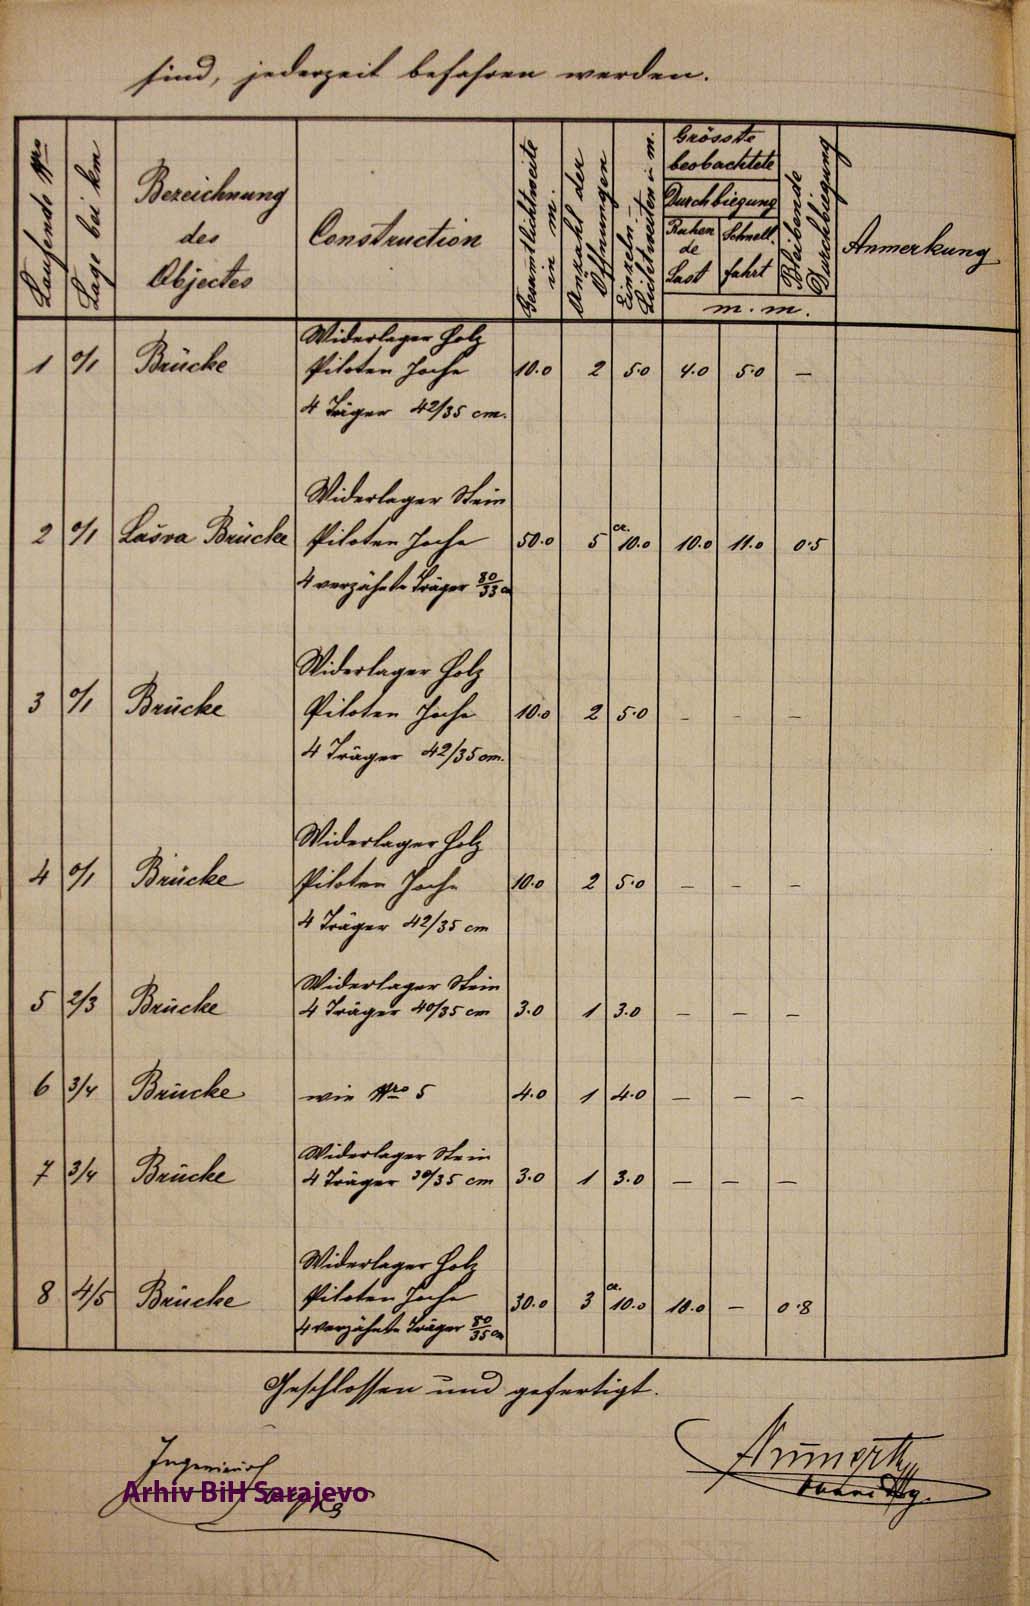 sind, jederzeit befahren werden.
Laufende Nro
Lage bei km
Bezeichnung
des
Objectes
Construction
Gesamtlichtweite
in m.
Anzahl der
Öffnungen
Einzeln-
Lichtweiten in m.
Grösste
beobachtete
Durchbiegung
Ruhen
de
Last
Schnell.
fahrt
Bleibende
Durchbiegung
m. m.
Anmerkung
Widerlager Holz
1 0/1 Brücke Piloten Joche 10.0 2 5.0 4.0 5.0 —
4 Träger 42/35 cm.
Widerlager Stein
2 0/1 Lašva Brücke Piloten Joche 50.0 5 ca. 10.0 10.0 11.0 0.5
4 verzähnte Träger 80/33 cm
Widerlager Holz
3 0/1 Brücke Piloten Joche 10.0 2 5.0 — — —
4 Träger 42/35 cm.
Widerlager Holz
4 0/1 Brücke Piloten Joche 10.0 2 5.0 — — —
4 Träger 42/35 cm
Widerlager Stein
5 2/3 Brücke 4 Träger 40/35 cm 3.0 1 3.0 — — —
6 3/4 Brücke wie Nro 5 4.0 1 4.0 — — —
Widerlager Stein
7 3/4 Brücke 4 Träger 30/35 cm 3.0 1 3.0 — — —
Widerlager Holz
8 4/5 Brücke Piloten Joche 30.0 3 ca. 10.0 10.0 — 0.8
4 verzähnte Träger 80/35 cm
Geschlossen und gefertigt.
Arhiv BiH Sarajevo